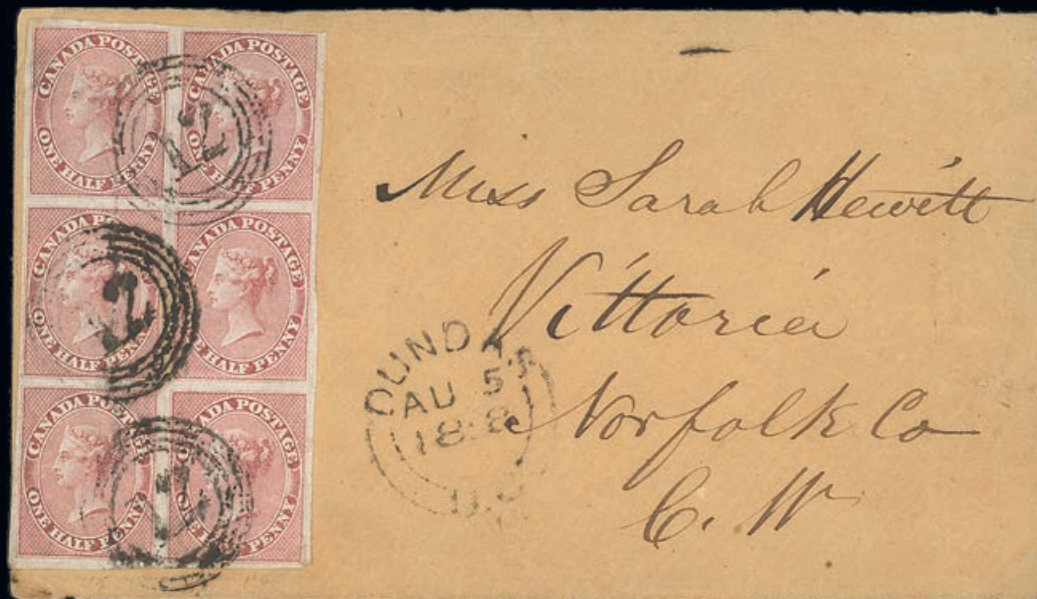 CANADA POSTAGE
ONE HALF PENNY
CANADA POSTAGE
ONE HALF PENNY
CANADA POSTAGE
ONE HALF PENNY
CANADA POSTAGE
ONE HALF PENNY
CANADA POSTAGE
ONE HALF PENNY
CANADA POSTAGE
ONE HALF PENNY
12
12
Miss Sarah Hewitt
Vittoria
Norfolk Co
C. W
DUNDAS
AU 5
U.C.